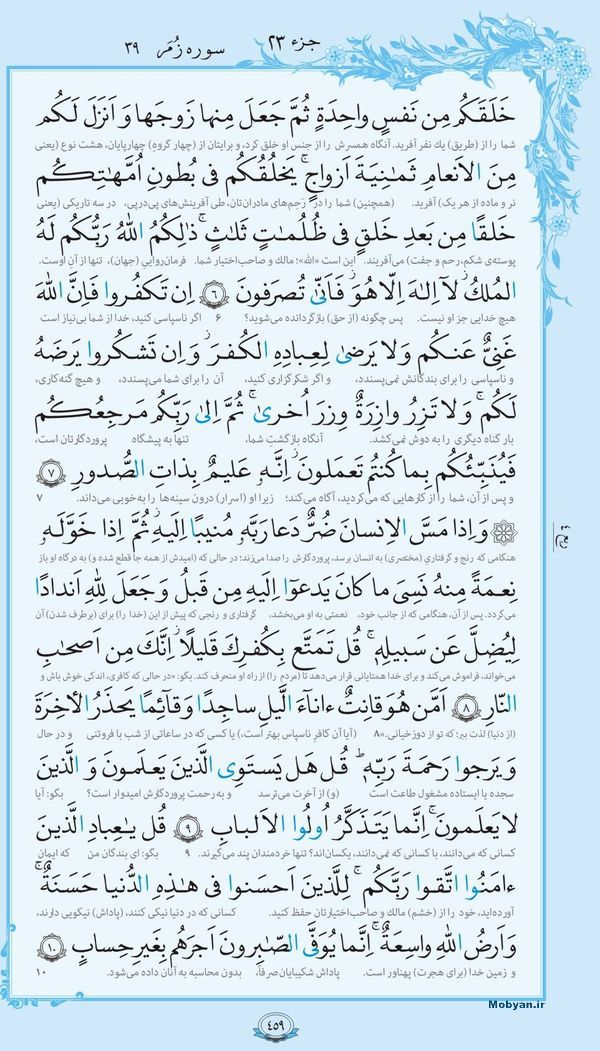 جزء ۲۳
سوره زُمَر ۳۹
خَلَقَكُم مِن نَفسٍ واحِدَةٍ ثُمَّ جَعَلَ مِنها زَوجَها وَ اَنزَلَ لَكُم
شما را از (طریق) یك نفر آفرید. آنگاه همسرش را از جنس او خلق کرد، و برایتان از (چهار گروه) چهارپایان، هشت نوع (یعنی
مِنَ الاَنعامِ ثَمٰنِيَةَ اَزواجٍ ۚ يَخلُقُكُم فى بُطونِ اُمَّهٰتِكُم
نر و ماده از هر یک) آفرید. (همچنین) شما را در رَحِم‌های مادرانتان، طی آفرینش‌های پی‌درپی، در سه تاریکی (یعنی
خَلقًا مِن بَعدِ خَلقٍ فى ظُلُمٰتٍ ثَلٰثٍ ۚ ذٰلِكُمُ اللّٰهُ رَبُّكُم لَهُ
پوسته‌ی شکم، رحم و جفت) می‌آفریند. این است «الله»؛ مالك و صاحب‌اختیار شما. فرمان‌روایی (جهان)، تنها از آنِ اوست.
المُلكُ ۖ لآ اِلٰهَ اِلّا هُوَ ۖ فَاَنّىٰ تُصرَفونَ ۶ اِن تَكفُروا فَاِنَّ اللّٰهَ
هیچ خدایی جز او نیست. پس چگونه (از حق) بازگردانده می‌شوید؟ ۶ اگر ناسپاسی کنید، خدا از شما بی‌نیاز است
غَنِىٌّ عَنكُم وَ لا يَرضىٰ لِعِبادِهِ الكُفرَ ۖ وَ اِن تَشكُروا يَرضَهُ
و ناسپاسی را برای بندگانش نمی‌پسندد، و اگر شکرگزاری کنید، آن را برای شما می‌پسندد، و هیچ گنه‌کاری،
لَكُم ۗ وَ لا تَزِرُ وازِرَةٌ وِزرَ اُخرىٰ ۗ ثُمَّ اِلىٰ رَبِّكُم مَرجِعُكُم
بار گناه دیگری را به دوش نمی‌کشد. آنگاه بازگشتِ شما، تنها به پیشگاه پروردگارتان است،
فَيُنَبِّئُكُم بِما كُنتُم تَعمَلونَ ۚ اِنَّهُ عَليمٌ بِذاتِ الصُّدورِ ۷
و پس از آن، شما را از کارهایی که می‌کردید، آگاه می‌کند؛ زیرا او (اسرار) درون سینه‌ها را به‌خوبی می‌داند. ۷
وَ اِذا مَسَّ الاِنسانَ ضُرٌّ دَعا رَبَّهُ مُنيبًا اِلَيهِ ثُمَّ اِذا خَوَّلَهُ
هنگامی که رنج و گرفتاریِ (مختصری) به انسان برسد، پروردگارش را صدا می‌زند؛ در حالی که (امیدش از همه جا قطع شده و) به درگاه او باز
نِعمَةً مِنهُ نَسِىَ ما كانَ يَدعوٓا اِلَيهِ مِن قَبلُ وَ جَعَلَ لِلّٰهِ اَندادًا
می‌گردد. پس از آن، هنگامی که از جانب خود، نعمتی به او می‌بخشد، گرفتاری و رنجی که پیش از این (خدا را) برای (برطرف شدن) آن
لِيُضِلَّ عَن سَبيلِهِ ۚ قُل تَمَتَّع بِكُفرِكَ قَليلًا ۖ اِنَّكَ مِن اَصحٰبِ
می‌خواند، فراموش می‌کند و برای خدا همتایانی قرار می‌دهد تا (مردم را) از راه او منحرف کند. بگو: «در حالی که کافری، اندکی خوش باش و
النّارِ ۸ اَمَّن هُوَ قانِتٌ ءانآءَ الَّيلِ ساجِدًا وَ قآئِمًا يَحذَرُ الأخِرَةَ
(از دنیا) لذت ببر؛ که تو از دوزخیانی.» ۸ (آیا آن کافرِ ناسپاس بهتر است،) یا کسی که در ساعاتی از شب با فروتنی و در حال
وَ يَرجوا رَحمَةَ رَبِّهِ ۗ قُل هَل يَستَوِى الَّذينَ يَعلَمونَ وَ الَّذينَ
سجده یا ایستاده مشغول طاعت است (و) از آخرت می‌ترسد و به رحمت پروردگارش امیدوار است؟ بگو: آیا
لا يَعلَمونَ ۗ اِنَّما يَتَذَكَّرُ اُولُوا الاَلبابِ ۹ قُل يٰعِبادِ الَّذينَ
کسانی که می‌دانند، با کسانی که نمی‌دانند، یکسان‌اند؟ تنها خردمندان پند می‌گیرند. ۹ بگو: ای بندگان من که ایمان
ءامَنُوا اتَّقوا رَبَّكُم ۚ لِلَّذينَ اَحسَنوا فى هٰذِهِ الدُّنيا حَسَنَةٌ ۗ
آورده‌اید، خود را از (خشم) مالك و صاحب‌اختیارتان حفظ کنید. کسانی که در دنیا نیکی کنند، (پاداش) نیکویی دارند،
وَ اَرضُ اللّٰهِ واسِعَةٌ ۗ اِنَّما يُوَفَّى الصّٰبِرونَ اَجرَهُم بِغَيرِ حِسابٍ ۱۰
و زمین خدا (برای هجرت) پهناور است. پاداش شکیبایان صرفاً، بدون محاسبه به آنان داده می‌شود. ۱۰
Mobyan.ir
۴۵۹